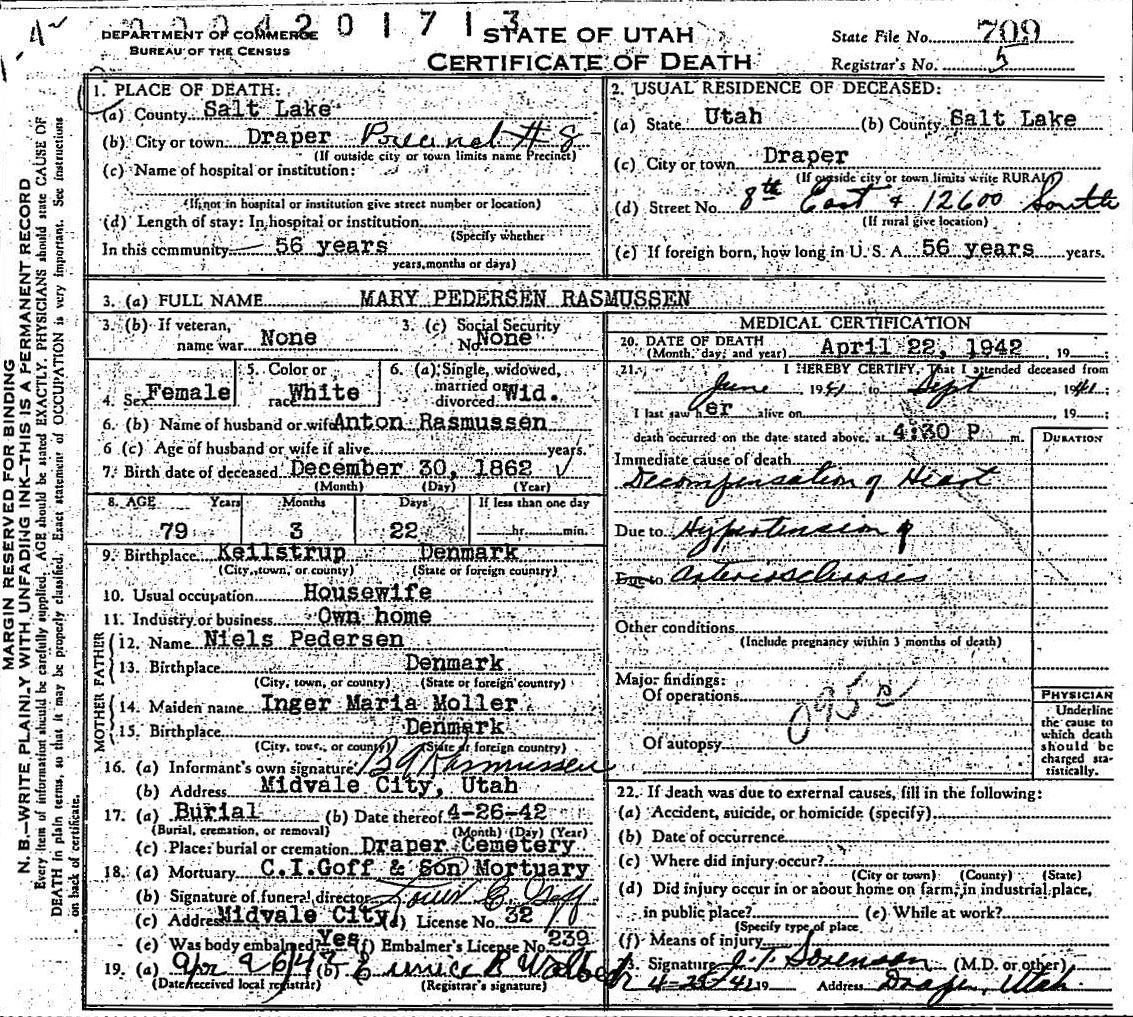 0004201713
DEPARTMENT OF COMMERCE
BUREAU OF THE CENSUS
STATE OF UTAH
CERTIFICATE OF DEATH
State File No. 709
Registrar's No. 5
MARGIN RESERVED FOR BINDING
N. B.—WRITE PLAINLY WITH UNFADING INK—THIS IS A PERMANENT RECORD
Every item of information should be carefully supplied. AGE should be stated EXACTLY. PHYSICIANS should state CAUSE OF
DEATH in plain terms, so that it may be properly classified. Exact statement of OCCUPATION is very important. See instructions
on back of certificate.
1. PLACE OF DEATH:
(a) County Salt Lake
(b) City or town Draper Precinct # 8
(If outside city or town limits name Precinct)
(c) Name of hospital or institution:
(If not in hospital or institution give street number or location)
(d) Length of stay: In hospital or institution
(Specify whether
In this community 56 years
years, months or days)
2. USUAL RESIDENCE OF DECEASED:
(a) State Utah (b) County Salt Lake
(c) City or town Draper
(If outside city or town limits write RURAL)
(d) Street No. 8th East & 12600 South
(If rural give location)
(e) If foreign born, how long in U. S. A. 56 years years.
3. (a) FULL NAME MARY PEDERSEN RASMUSSEN
3. (b) If veteran, name war None
3. (c) Social Security No. None
4. Sex Female
5. Color or race White
6. (a) Single, widowed, married or divorced Wid.
6. (b) Name of husband or wife Anton Rasmussen
6 (c) Age of husband or wife if alive years.
7. Birth date of deceased December 30, 1862
(Month) (Day) (Year)
8. AGE Years Months Days If less than one day
79 3 22 hr. min.
9. Birthplace Keilstrup Denmark
(City, town, or county) (State or foreign country)
10. Usual occupation Housewife
11. Industry or business Own home
FATHER
12. Name Niels Pedersen
13. Birthplace Denmark
(City, town, or county) (State or foreign country)
MOTHER
14. Maiden name Inger Maria Moller
15. Birthplace Denmark
(City, town, or county) (State or foreign country)
16. (a) Informant's own signature B A Rasmussen
(b) Address Midvale City, Utah
17. (a) Burial (b) Date thereof 4-26-42
(Burial, cremation, or removal) (Month) (Day) (Year)
(c) Place: burial or cremation Draper Cemetery
18. (a) Mortuary C.I.Goff & Son Mortuary
(b) Signature of funeral director Louis C. Goff
(c) Address Midvale City (d) License No. 32
(e) Was body embalmed? Yes (f) Embalmer's License No. 239
19. (a) Apr 26/42 (b) Eunice B
(Date received local registrar) (Registrar's signature)
MEDICAL CERTIFICATION
20. DATE OF DEATH
(Month, day, and year) April 22, 1942, 19
21. I HEREBY CERTIFY, That I attended deceased from
June 1941 to Sept 1941
I last saw her alive on , 19 ;
death occurred on the date stated above, at 4:30 P m.
DURATION
Immediate cause of death
Decompensation of Heart
Due to Hypertension &
Due to arteriosclerosis
Other conditions
(Include pregnancy within 3 months of death)
Major findings:
Of operations
095
Of autopsy
PHYSICIAN
Underline
the cause to
which death
should be
charged sta-
tistically.
22. If death was due to external causes, fill in the following:
(a) Accident, suicide, or homicide (specify)
(b) Date of occurrence
(c) Where did injury occur?
(City or town) (County) (State)
(d) Did injury occur in or about home on farm, in industrial place,
in public place? (e) While at work?
(Specify type of place
(f) Means of injury
23. Signature J. T. Sorenson (M.D. or other)
19 Address Draper, Utah.